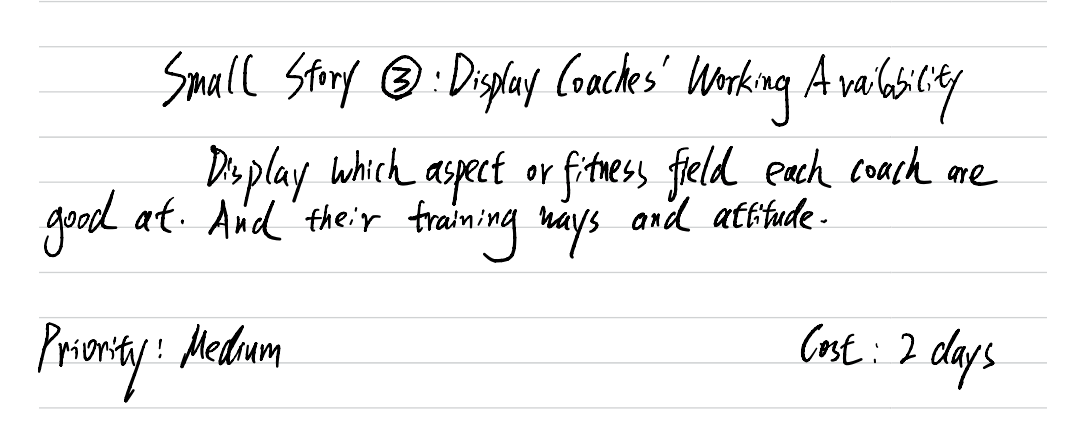 Small Story ③: Display Coaches' Working Availability
Display which aspect or fitness field each coach are
good at. And their training ways and attitude.
Priority: Medium
Cost: 2 days